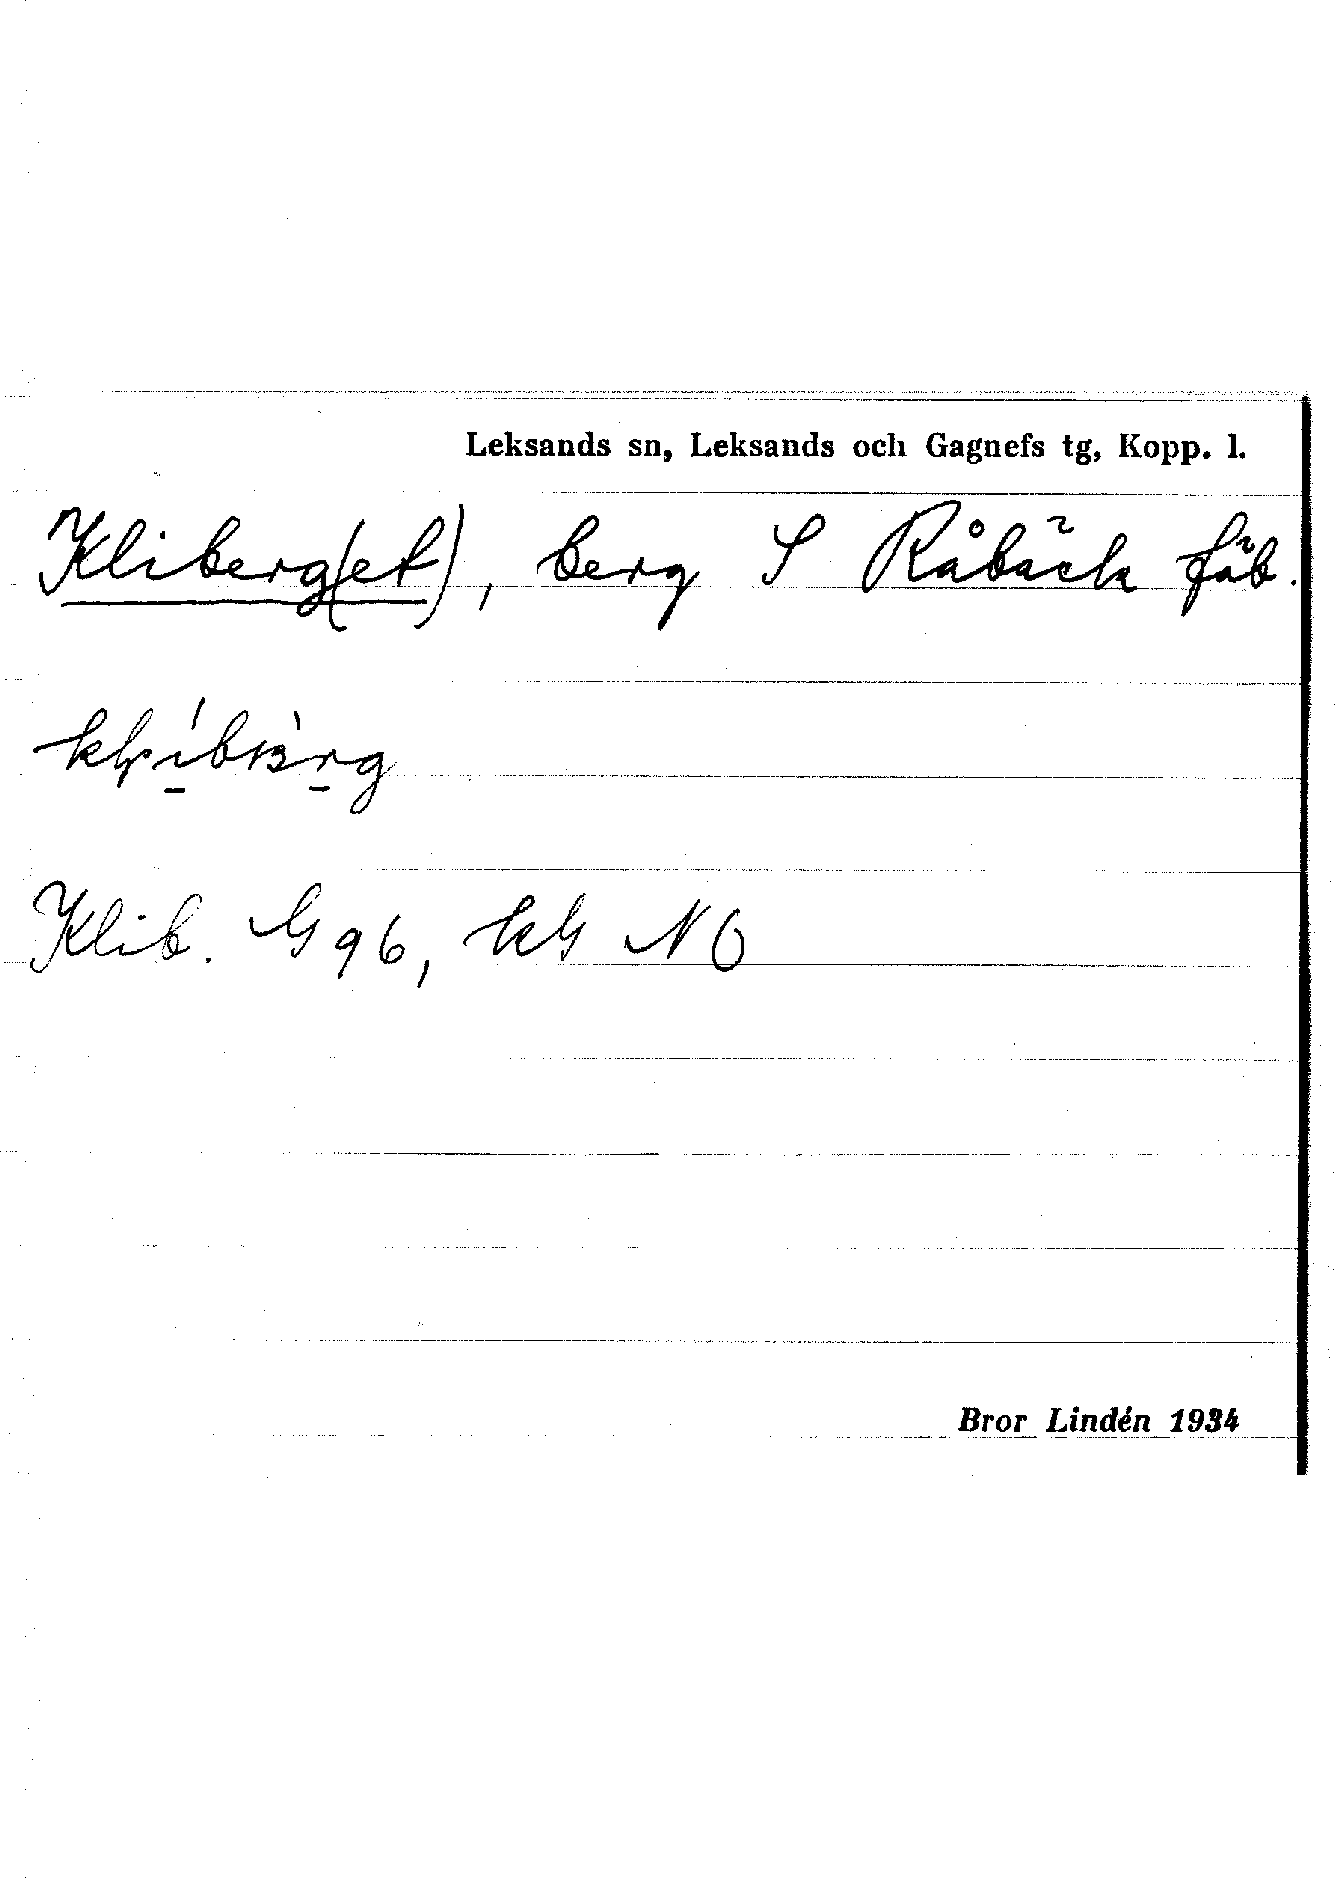 Leksands sn, Leksands och Gagnefs tg, Kopp. l.
Kliberg(et), berg S Råbäck fäb.
Klib. G 96, kG NO
Bror Lindén 1934